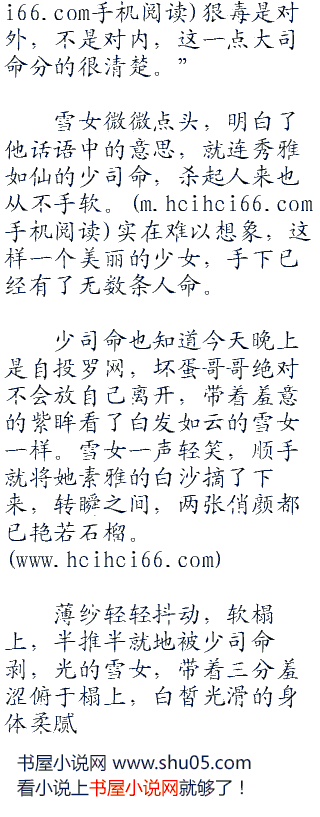 i66.com手机阅读)狠毒是对
外，不是对内，这一点大司
命分的很清楚。”
雪女微微点头，明白了
他话语中的意思，就连秀雅
如仙的少司命，杀起人来也
从不手软。(m.hcihci66.com
手机阅读)实在难以想象，这
样一个美丽的少女，手下已
经有了无数条人命。
少司命也知道今天晚上
是自投罗网，坏蛋哥哥绝对
不会放自己离开，带着羞意
的紫眸看了白发如云的雪女
一样。雪女一声轻笑，顺手
就将她素雅的白沙摘了下
来，转瞬之间，两张俏颜都
已艳若石榴。
(www.hcihci66.com)
薄纱轻轻抖动，软榻
上，半推半就地被少司命
剥，光的雪女，带着三分羞
涩俯于榻上，白皙光滑的身
体柔腻
书屋小说网 www.shu05.com
看小说上书屋小说网就够了！